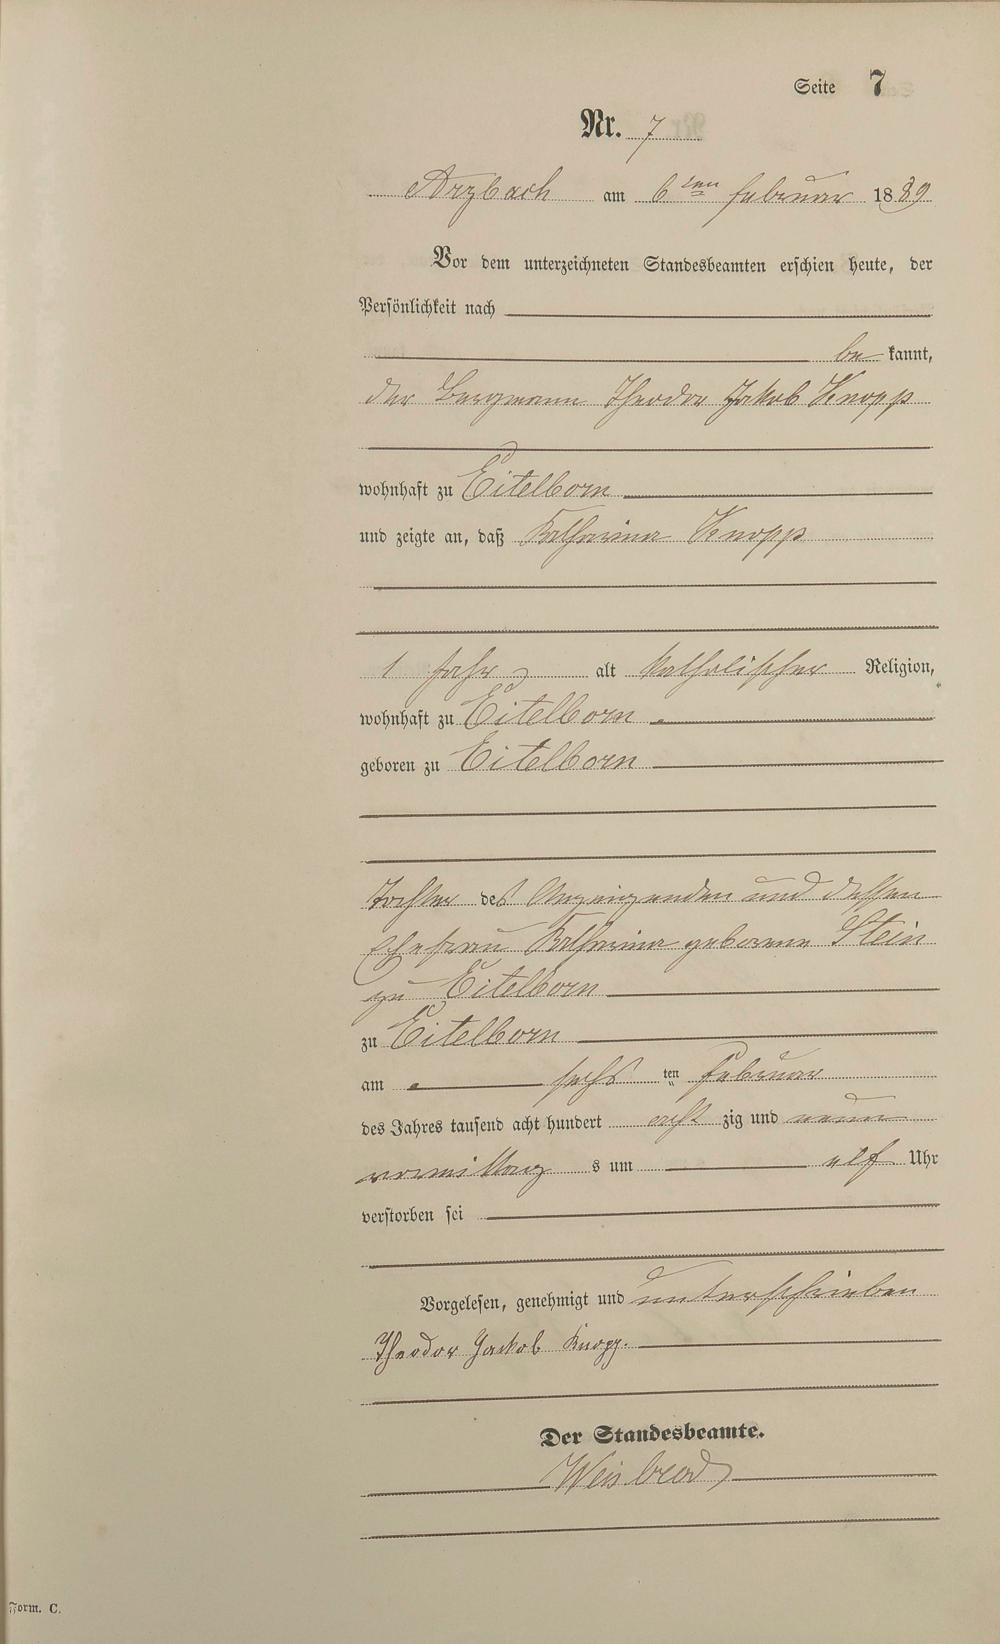 Seite 7
Nr. 7
Arzbach am 6ten Februar 1889
Vor dem unterzeichneten Standesbeamten erschien heute, der
Persönlichkeit nach
be kannt,
der Bergmann Theodor Jakob Knopp
wohnhaft zu Eitelborn
und zeigte an, daß Katharina Knopp
1 Jahr alt katholischer Religion,
wohnhaft zu Eitelborn
geboren zu Eitelborn
Tochter des Anzeigenden und dessen
Ehefrau Katharina geborene Stein
zu Eitelborn
zu Eitelborn
am sechsten Februar
des Jahres tausend acht hundert acht zig und neun
vormittag s um elf Uhr
verstorben sei
Vorgelesen, genehmigt und unterschrieben
Theodor Jakob Knopp.
Der Standesbeamte.
Weisbrod
Form. C.